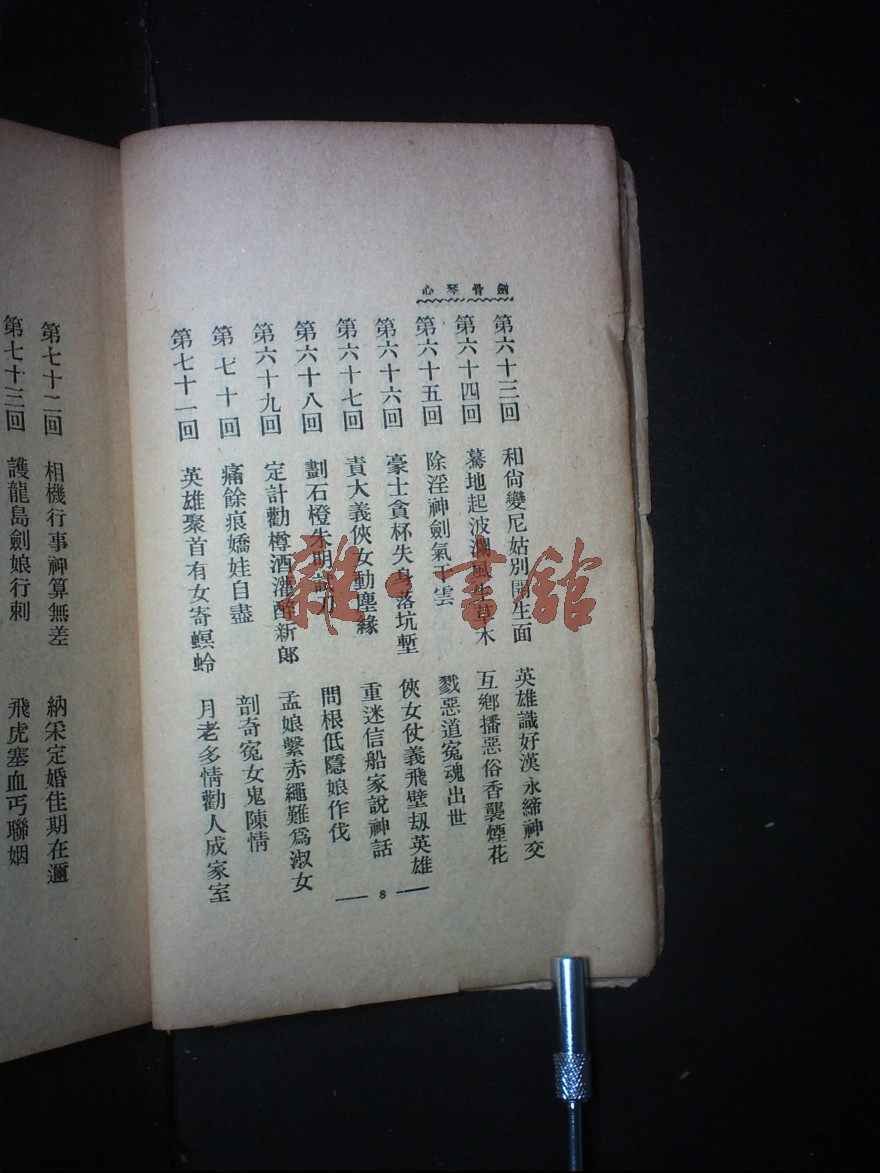 劍骨琴心
第六十三回 和尙變尼姑別開生面 英雄識好漢永締神交
第六十四回 驀地起波瀾風生草木 互鄕播惡俗香襲煙花
第六十五回 除淫神劍氣干雲 戮惡道冤魂出世
第六十六回 豪士貪杯失身落坑塹 俠女仗義飛壁刼英雄
第六十七回 責大義俠女動塵緣 重迷信船家說神話
第六十八回 劃石橙朱明試刀 問根低隱娘作伐
第六十九回 定計勸樽酒灌醉新郞 孟娘繫赤繩難爲淑女
第七十回 痛餘痕嬌娃自盡 剖奇冤女鬼陳情
第七十一回 英雄聚首有女寄螟蛉 月老多情勸人成家室
8
第七十二回 相機行事神算無差 納采定婚佳期在邇
第七十三回 護龍島劍娘行刺 飛虎塞血丐聯姻
雜·書舘